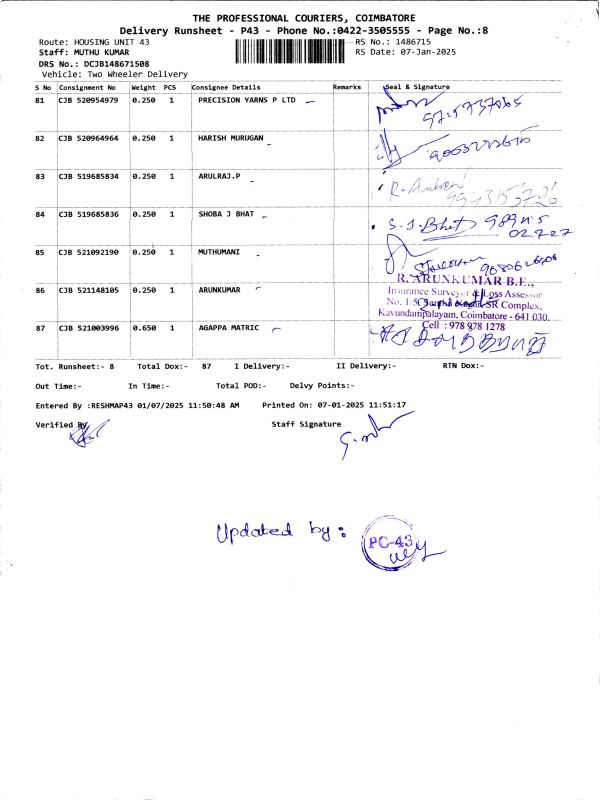 THE PROFESSIONAL COURIERS, COIMBATORE
Delivery Runsheet - P43 - Phone No.:0422-3505555 - Page No.:8
Route: HOUSING UNIT 43 RS No.: 1486715
Staff: MUTHU KUMAR RS Date: 07-Jan-2025
DRS No.: DCJB148671508
Vehicle: Two Wheeler Delivery
S No Consignment No Weight PCS Consignee Details Remarks Seal & Signature
81 CJB 520954979 0.250 1 PRECISION YARNS P LTD
82 CJB 520964964 0.250 1 HARISH MURUGAN
83 CJB 519685834 0.250 1 ARULRAJ.P
84 CJB 519685836 0.250 1 SHOBA J BHAT S.J.Bhat
85 CJB 521092190 0.250 1 MUTHUMANI
86 CJB 521148105 0.250 1 ARUNKUMAR
R. ARUNKUMAR B.E.,
Insurance Surveyor & Loss Assessor
Kavundampalayam, Coimbatore - 641 030.
Cell : 978 978 1278
87 CJB 521003996 0.650 1 AGAPPA MATRIC
Tot. Runsheet:- 8 Total Dox:- 87 I Delivery:- II Delivery:- RTN Dox:-
Out Time:- In Time:- Total POD:- Delvy Points:-
Entered By :RESHMAP43 01/07/2025 11:50:48 AM Printed On: 07-01-2025 11:51:17
Verified By Staff Signature
Updated by:
PC-43